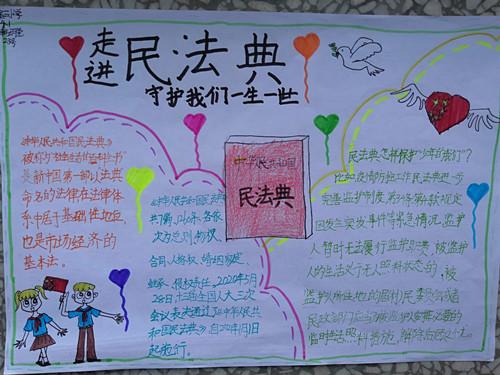 走进
民法典
守护我们一生一世
中华人民共和国
民法典
《中华人民共和国民法典》
被称为"社会生活的百科全书"
是新中国第一部以法典
命名的法律在法律体
系中居于基础性地位,
也是市场经济的
基本法。
《中华人民共和国民法典》
共7编、1260条,各编
次为总则、物权、
合同、人格权、婚姻家庭、
继承、侵权责任。2020年5月
28日,十三届全国人大三次
会议表决通过了《中华人民共
和国民法典》,自2021年1月1日
起施行。
民法典怎样保护少年的我们?
民法典进一步
完善监护制度,第34条第4款规定
因发生突发事件等紧急情况,监护
人暂时无法履行监护职责,被监护
人的生活处于无人照料状态的,被
监护人住所地的居民委员会、村民委员会或者
民政部门应当为被监护人安排必要的
临时生活照料措施。